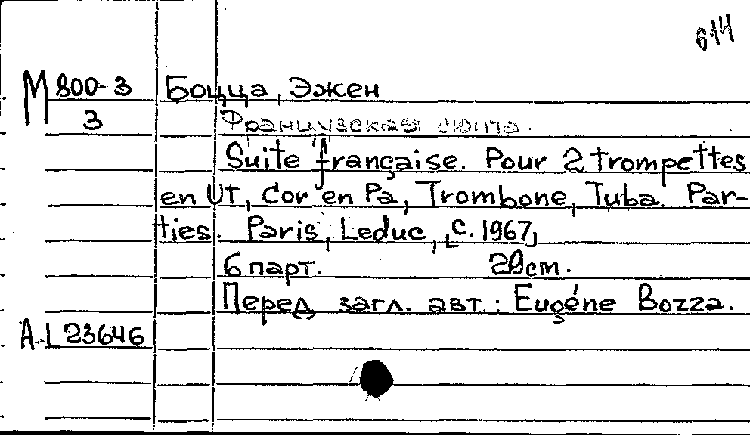 614
М 800-3 Боцца, Эжен
3 Французская сюита.
Suite française. Pour 2 trompettes
en UT, Cor en Fa, Trombone, Tuba. Par-
ties. Paris, Leduc, [c. 1967]
6 парт. 28cm.
Перед загл. авт.: Eugéne Bozza.
A-L 23646